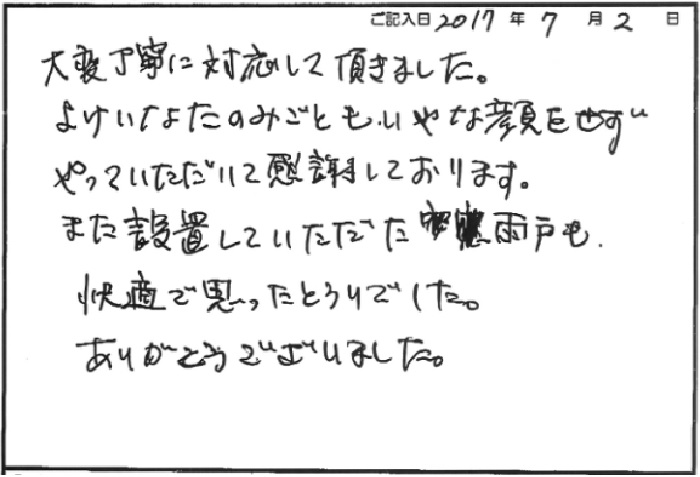 ご記入日 2017 年 7 月 2 日
大変丁寧に対応して頂きました。
よけいなたのみごともいやな顔をせず
やっていただいて感謝しております。
また設置していただた 雨戸も、
快適で思ったとうりでした。
ありがとうございました。